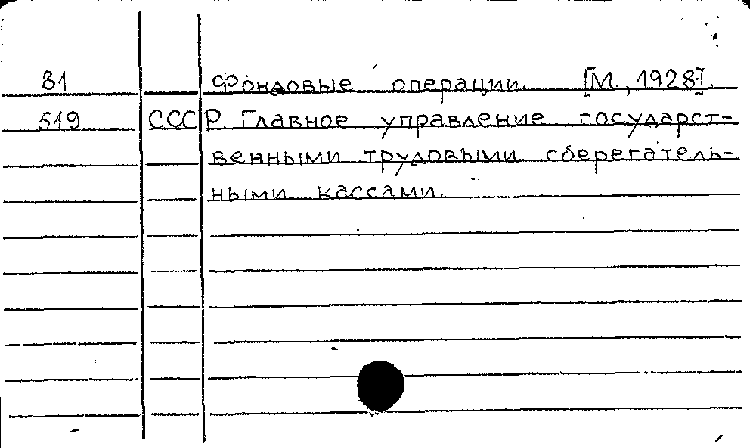 В1 Фондовые операции. [М., 1928].
519 СССР. Главное управление государст-
венными трудовыми сберегатель-
ными кассами.